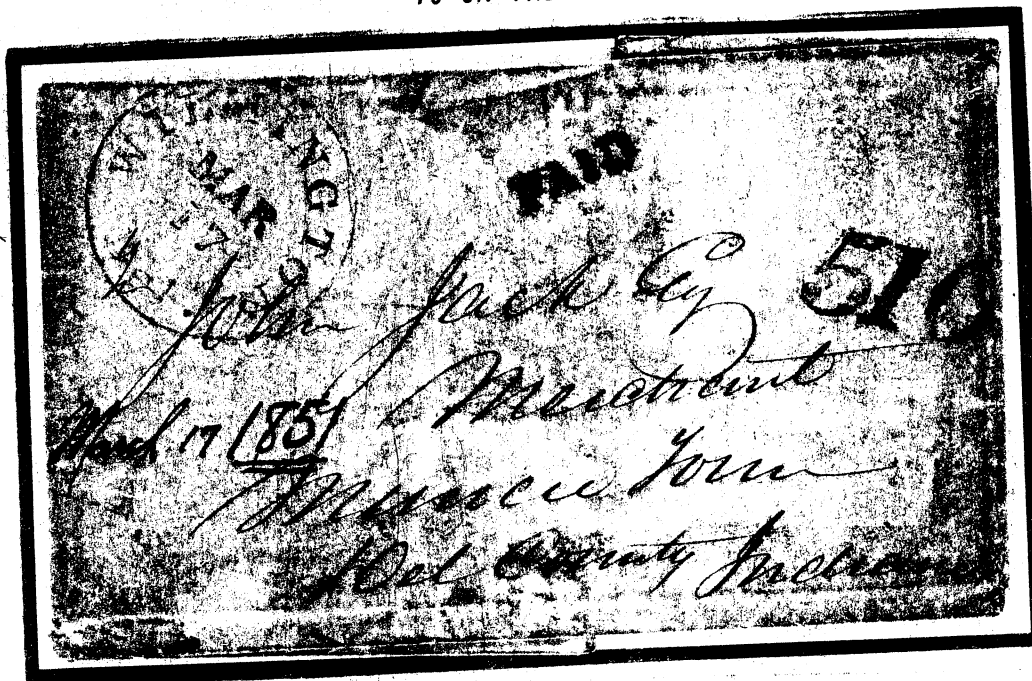 WIL NGTO
MAR
17
PAID
510
John Jack Esq
Merchant
March 17 1851
Muncie Town
Del County Indiana